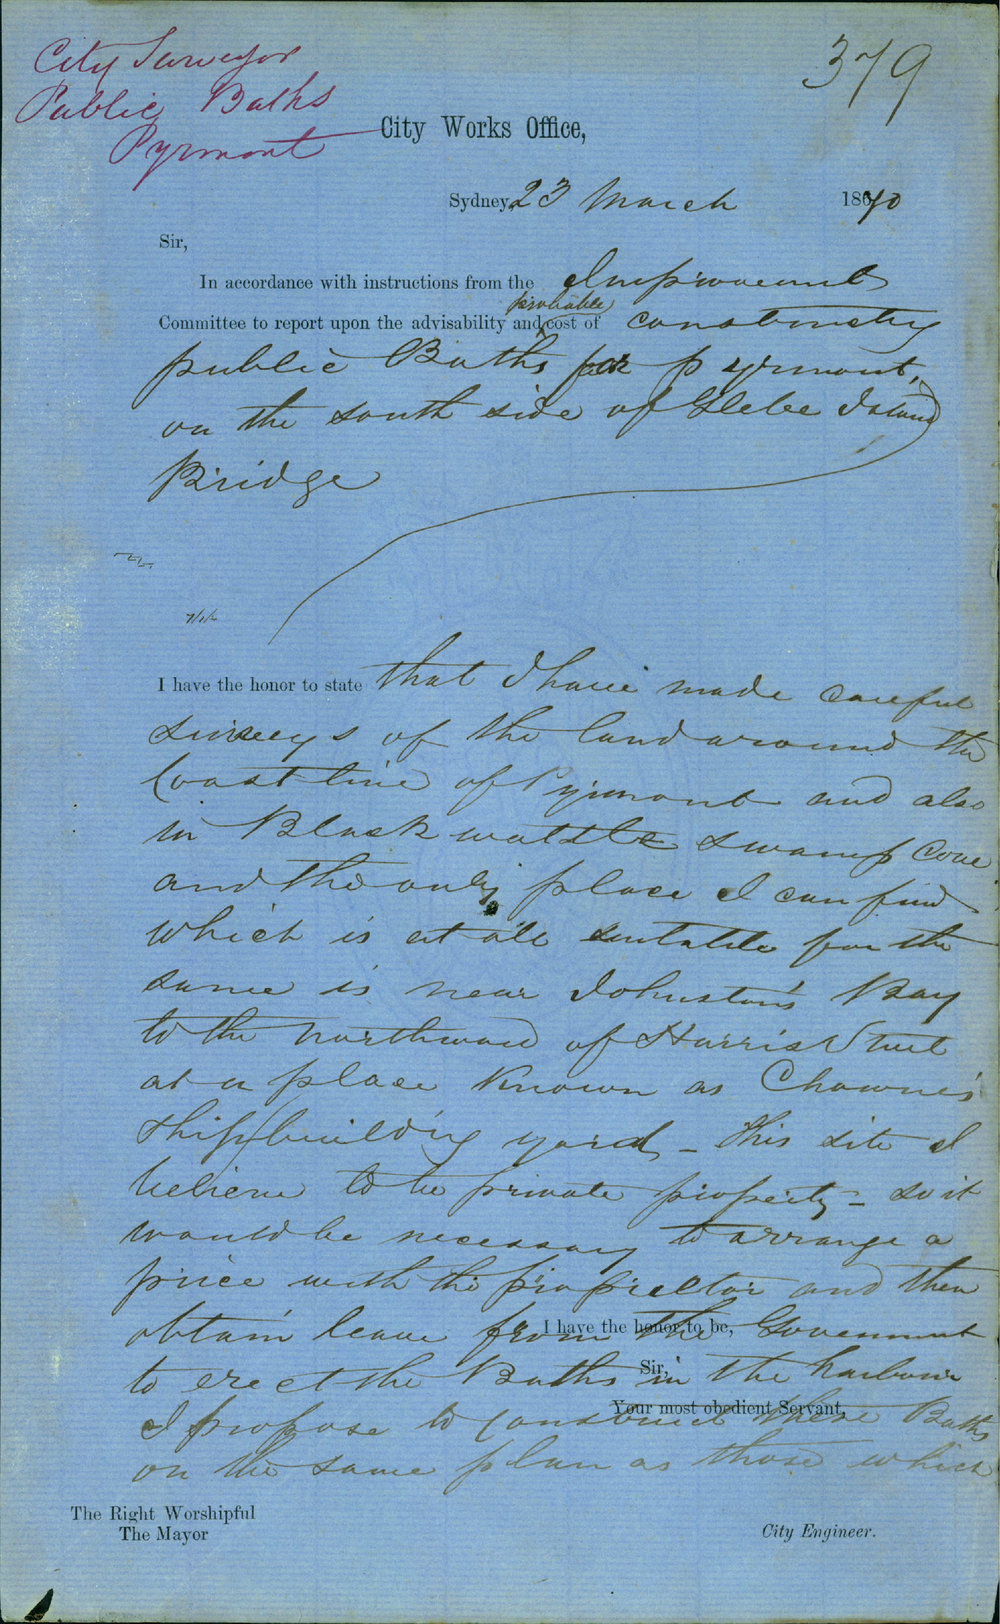 City Surveyor
Public Baths
Pyrmont
379
City Works Office,
Sydney, 23 March 1870
Sir,
In accordance with instructions from the Improvement
probable
Committee to report upon the advisability and cost of constructing
public Baths for Pyrmont,
on the south side of Glebe Island
Bridge
I have the honor to state that I have made careful
surveys of the land around the
Coast line of Pyrmont and also
in Black wattle swamp Cove
and the only place I can find
which is at all suitable for the
same is near Johnston's Bay
to the northward of Harris Street
at a place known as Chowne's
Shipbuilding yard - This site I
believe to be private property - so it
would be necessary to arrange a
price with the proprietor and then
obtain leave from the Government
I have the honor to be,
to erect the Baths in the harbour
Sir,
I propose to construct these Baths
Your most obedient Servant,
on the same plan as those which
The Right Worshipful
The Mayor
City Engineer.